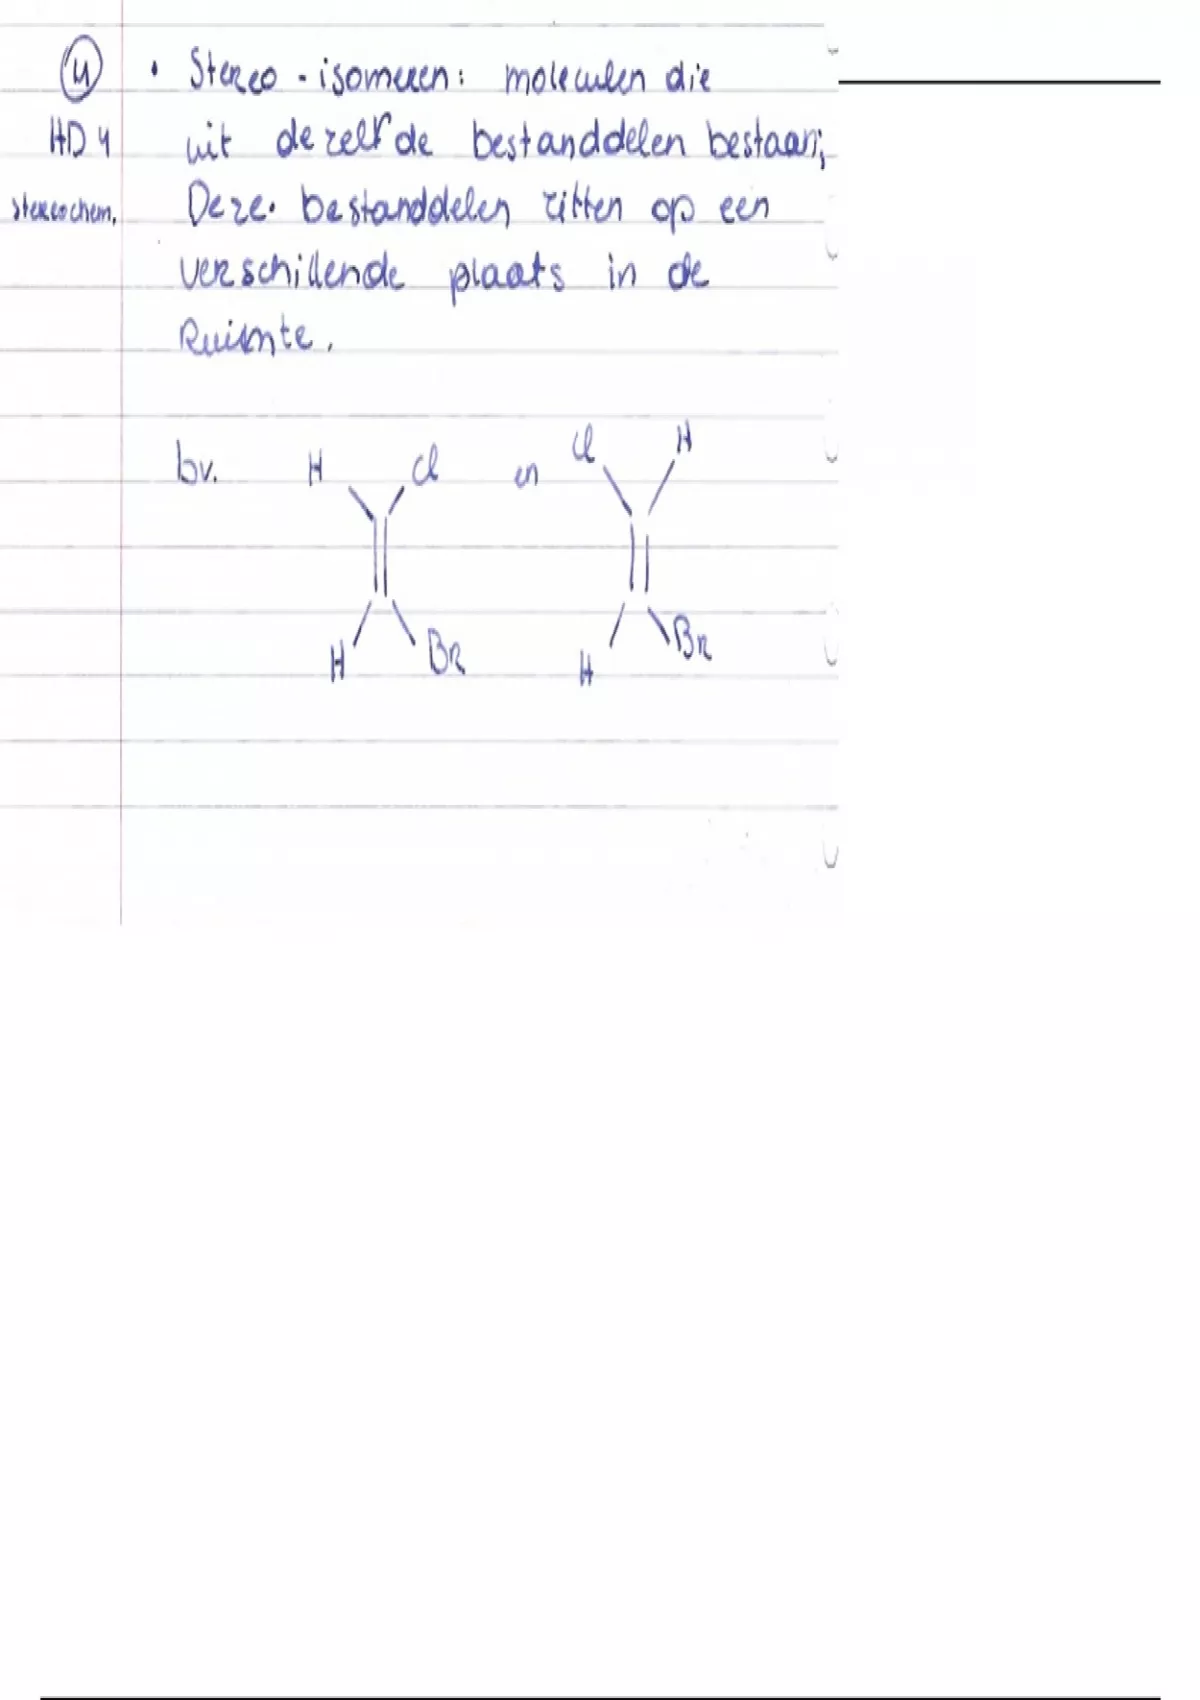 4 • Stereo-isomeren: moleculen die
HD 4 uit dezelfde bestanddelen bestaan;
stereochem. Deze bestanddelen zitten op een
verschillende plaats in de
Ruimte.
bv. H Cl en Cl H
H Br H Br